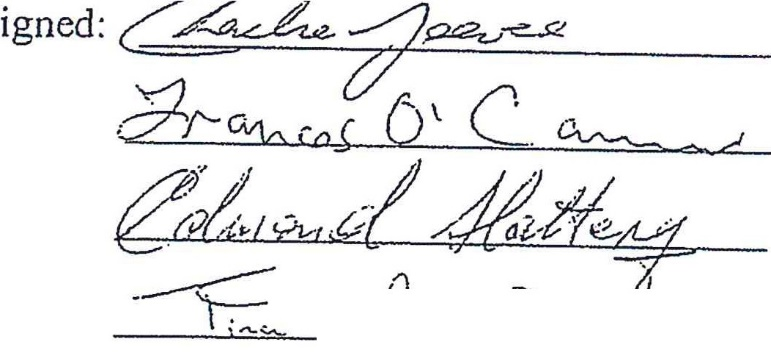 igned: Charlie Jeeves
Frances O' Connor
Edmond Slattery
Tina